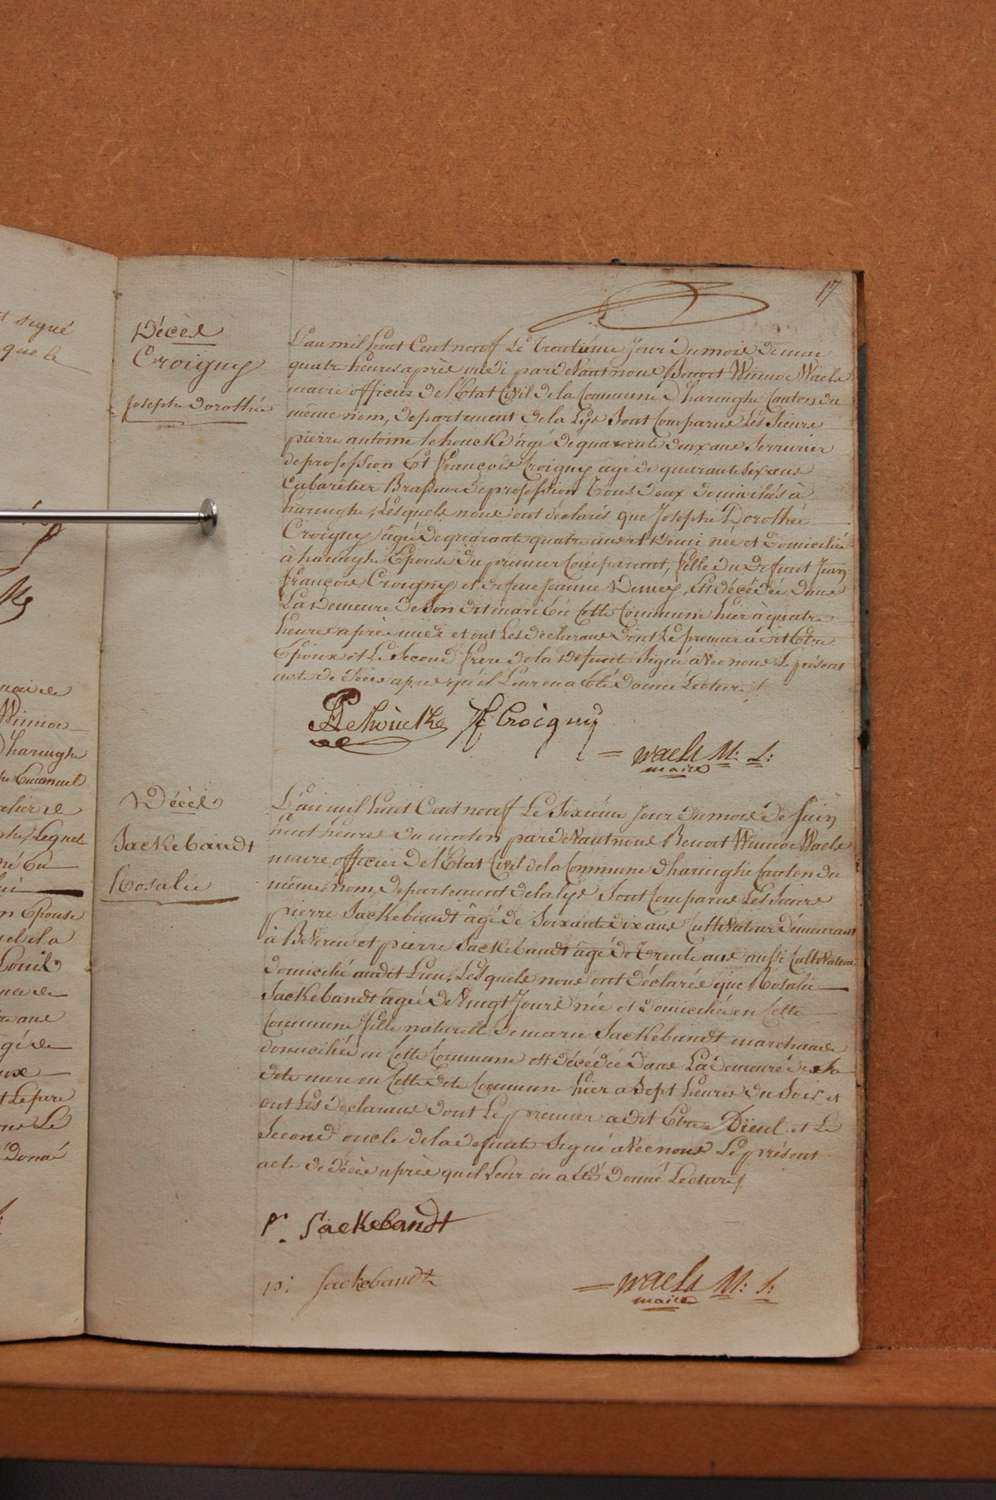 17
Décès
Croigny
Josephe Dorothée
L'an mil huit Cent neuf Le Trentième Jour du mois de mai
quatre heures après midi pardevant nous Benoit Winnoc Waels
maire officier de l'Etat Civil de la Commune d'haringhe Canton du
même nom, departement de la Lys Sont Comparus Les Sieurs
pierre antoine Lehoucke âgé de quarante deux ans Serrurier
de profession Et françois Croigny agé de quarante six ans
Cabaretier Brasseur de profession Tous deux domiciliés à
haringhe, Lesquels nous ont déclarés que Josephe Dorothée
Croigny âgée de quarante quatre ans et Demi née et domiciliée
à haringhe Epouse du premier Comparant, fille du Defunt Jean
françois Croigny et defeue Jeanne est décédée dans
La Demeure de Son dit mari en Cette Commune hier à quatre
heures après midi et ont Les déclarans dont Le premier a dit Etre
Epoux et Le Second frère de la Defunte Signé avec nous Le présent
acte de décès après qu'il Leur en a été donné Lecture /
Lehoucke f Croigny
= Waels M: L:
maire
Décès
Sackebandt
Rosalie
L'an mil huit Cent neuf Le Sixième Jour du mois de Juin
huit heures du matin pardevant nous Benoit Winnoc Waels
maire officier de l'Etat Civil de la Commune d'haringhe Canton du
même nom, departement de la Lys Sont Comparus Les Sieurs
pierre Sackebandt âgé de Soixante dix ans Cultivateur demeurant
à Beveren et pierre Sackebandt âgé de Trente ans aussi Cultivateur
domicilié audit Lieu, Lesquels nous ont déclarés que Rosalie
Sackebandt âgée de vingt Jours née et domiciliée en Cette
Commune fille naturelle de marie Sackebandt marchande
domiciliée en Cette Commune est décédée dans La Demeure de sa
dite mere en Cette dite Commune hier a Sept heures du Soir et
ont Les declarans dont Le premier a dit Etre Dïeul et Le
Second oncle de la defunte Signé avec nous Le présent
acte de décès après qu'il Leur en a été donné Lecture /
P. Sackebandt
p: Sackebandt
= Waels M: L:
maire